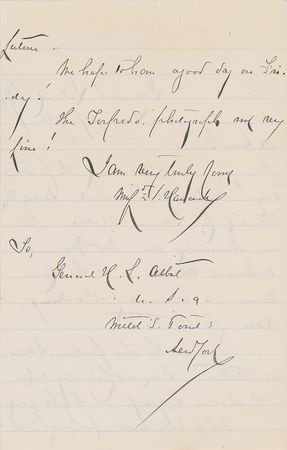 future.
We hope to have a good day on Fri-
day.
The Torpedo photographs are very
fine!
I am very truly yours
Winf'd S. Hancock
To,
General H. L. Abbot
U. S. A
Willets Point
New York